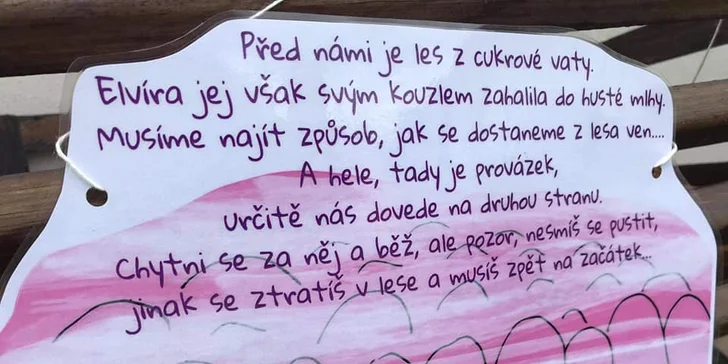 Před námi je les z cukrové vaty.
Elvíra jej však svým kouzlem zahalila do husté mlhy.
Musíme najít způsob, jak se dostaneme z lesa ven....
A hele, tady je provázek,
určitě nás dovede na druhou stranu.
Chytni se za něj a běž, ale pozor, nesmíš se pustit,
jinak se ztratíš v lese a musíš zpět na začátek...